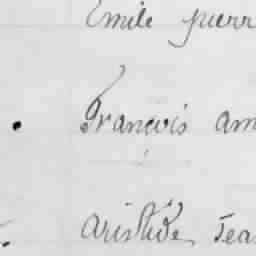 Emile pierr
François am
Aristide Jea